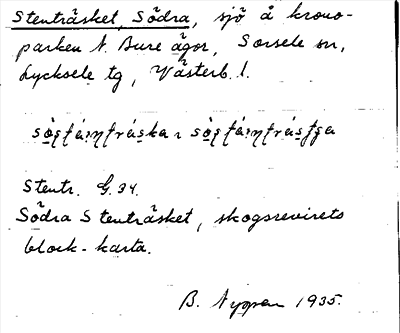 Stenträsket, Södra, sjö å krono-
parken N. Bure ägor, Sorsele sn,
Lycksele tg, Västerb. l.
Stentr. G. 34.
Södra Stenträsket, skogsrevirets
block-karta.
B. Nyppen 1935.